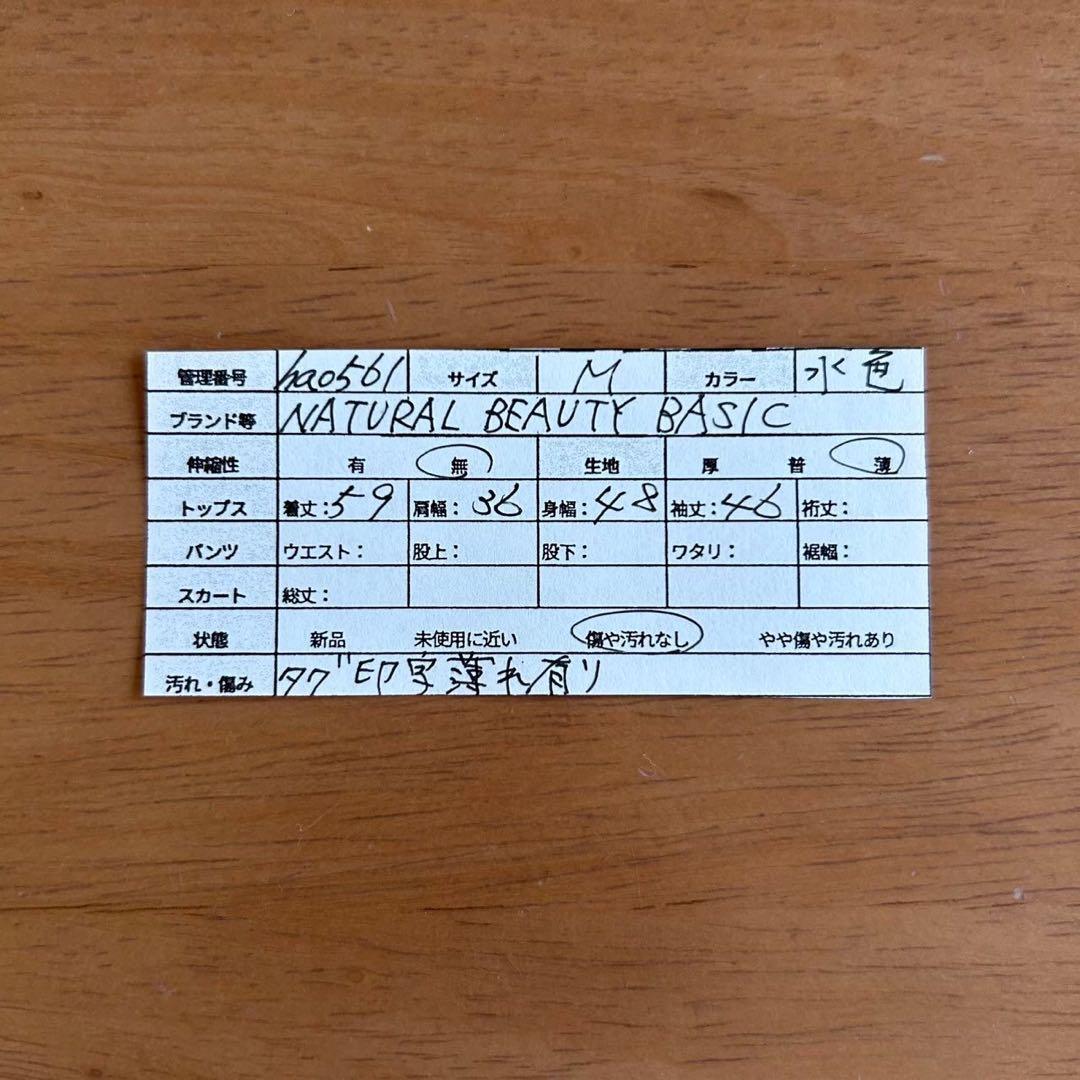 管理番号 hao561 サイズ M カラー 水色
ブランド等 NATURAL BEAUTY BASIC
伸縮性 有 無 生地 厚 普 薄
トップス 着丈：59 肩幅：36 身幅：48 袖丈：46 裄丈：
パンツ ウエスト： 股上： 股下： ワタリ： 裾幅：
スカート 総丈：
状態 新品 未使用に近い 傷や汚れなし やや傷や汚れあり
汚れ・傷み タグ印字薄れ有り